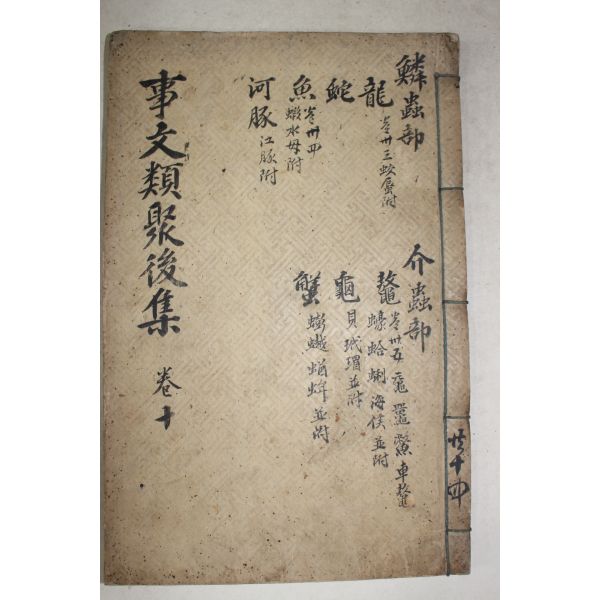 鱗蟲部
龍 卷卅三 蛟蜃附
蛇
魚 卷卅四
蝦水母附
河豚 江豚附
介蟲部
鼇 卷卅五 黿鼉鱉車螯
蠔蛤蜊海俟並附
龜 貝玳瑁並附
蟹 蟛蚏蝤蛑並附
共十四
事文類聚後集 卷十